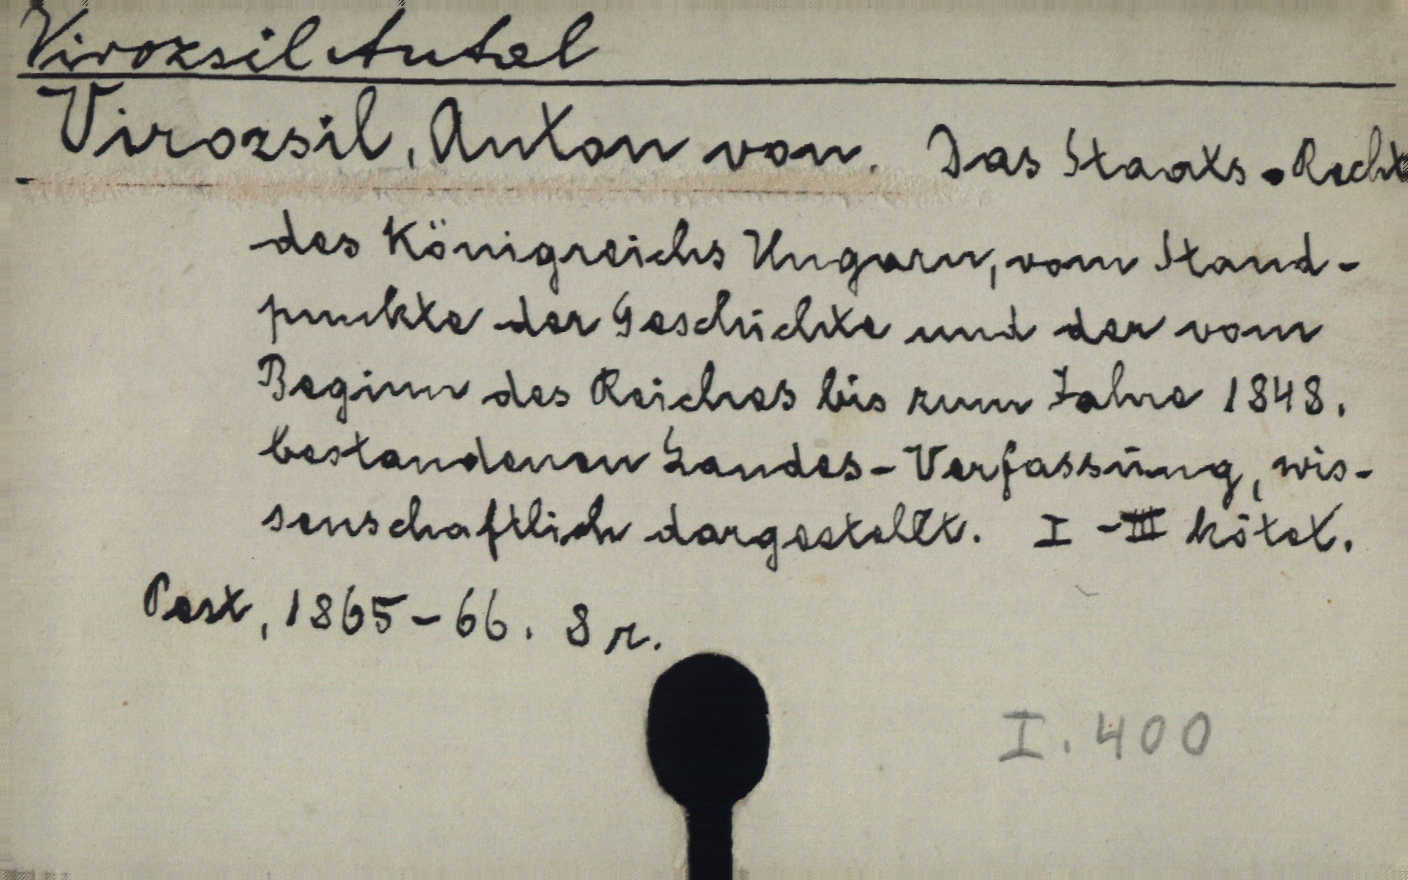 Virozsil Antal
Virozsil, Anton von. Das Staats-Recht
des Königreichs Ungarn, vom Stand-
punkte der Geschichte und der vom
Beginn des Reiches bis zum Jahre 1848.
bestandenen Landes-Verfassung, wis-
senschaftlich dargestellt. I-III kötet.
Pest, 1865-66. 8 r.
I. 400